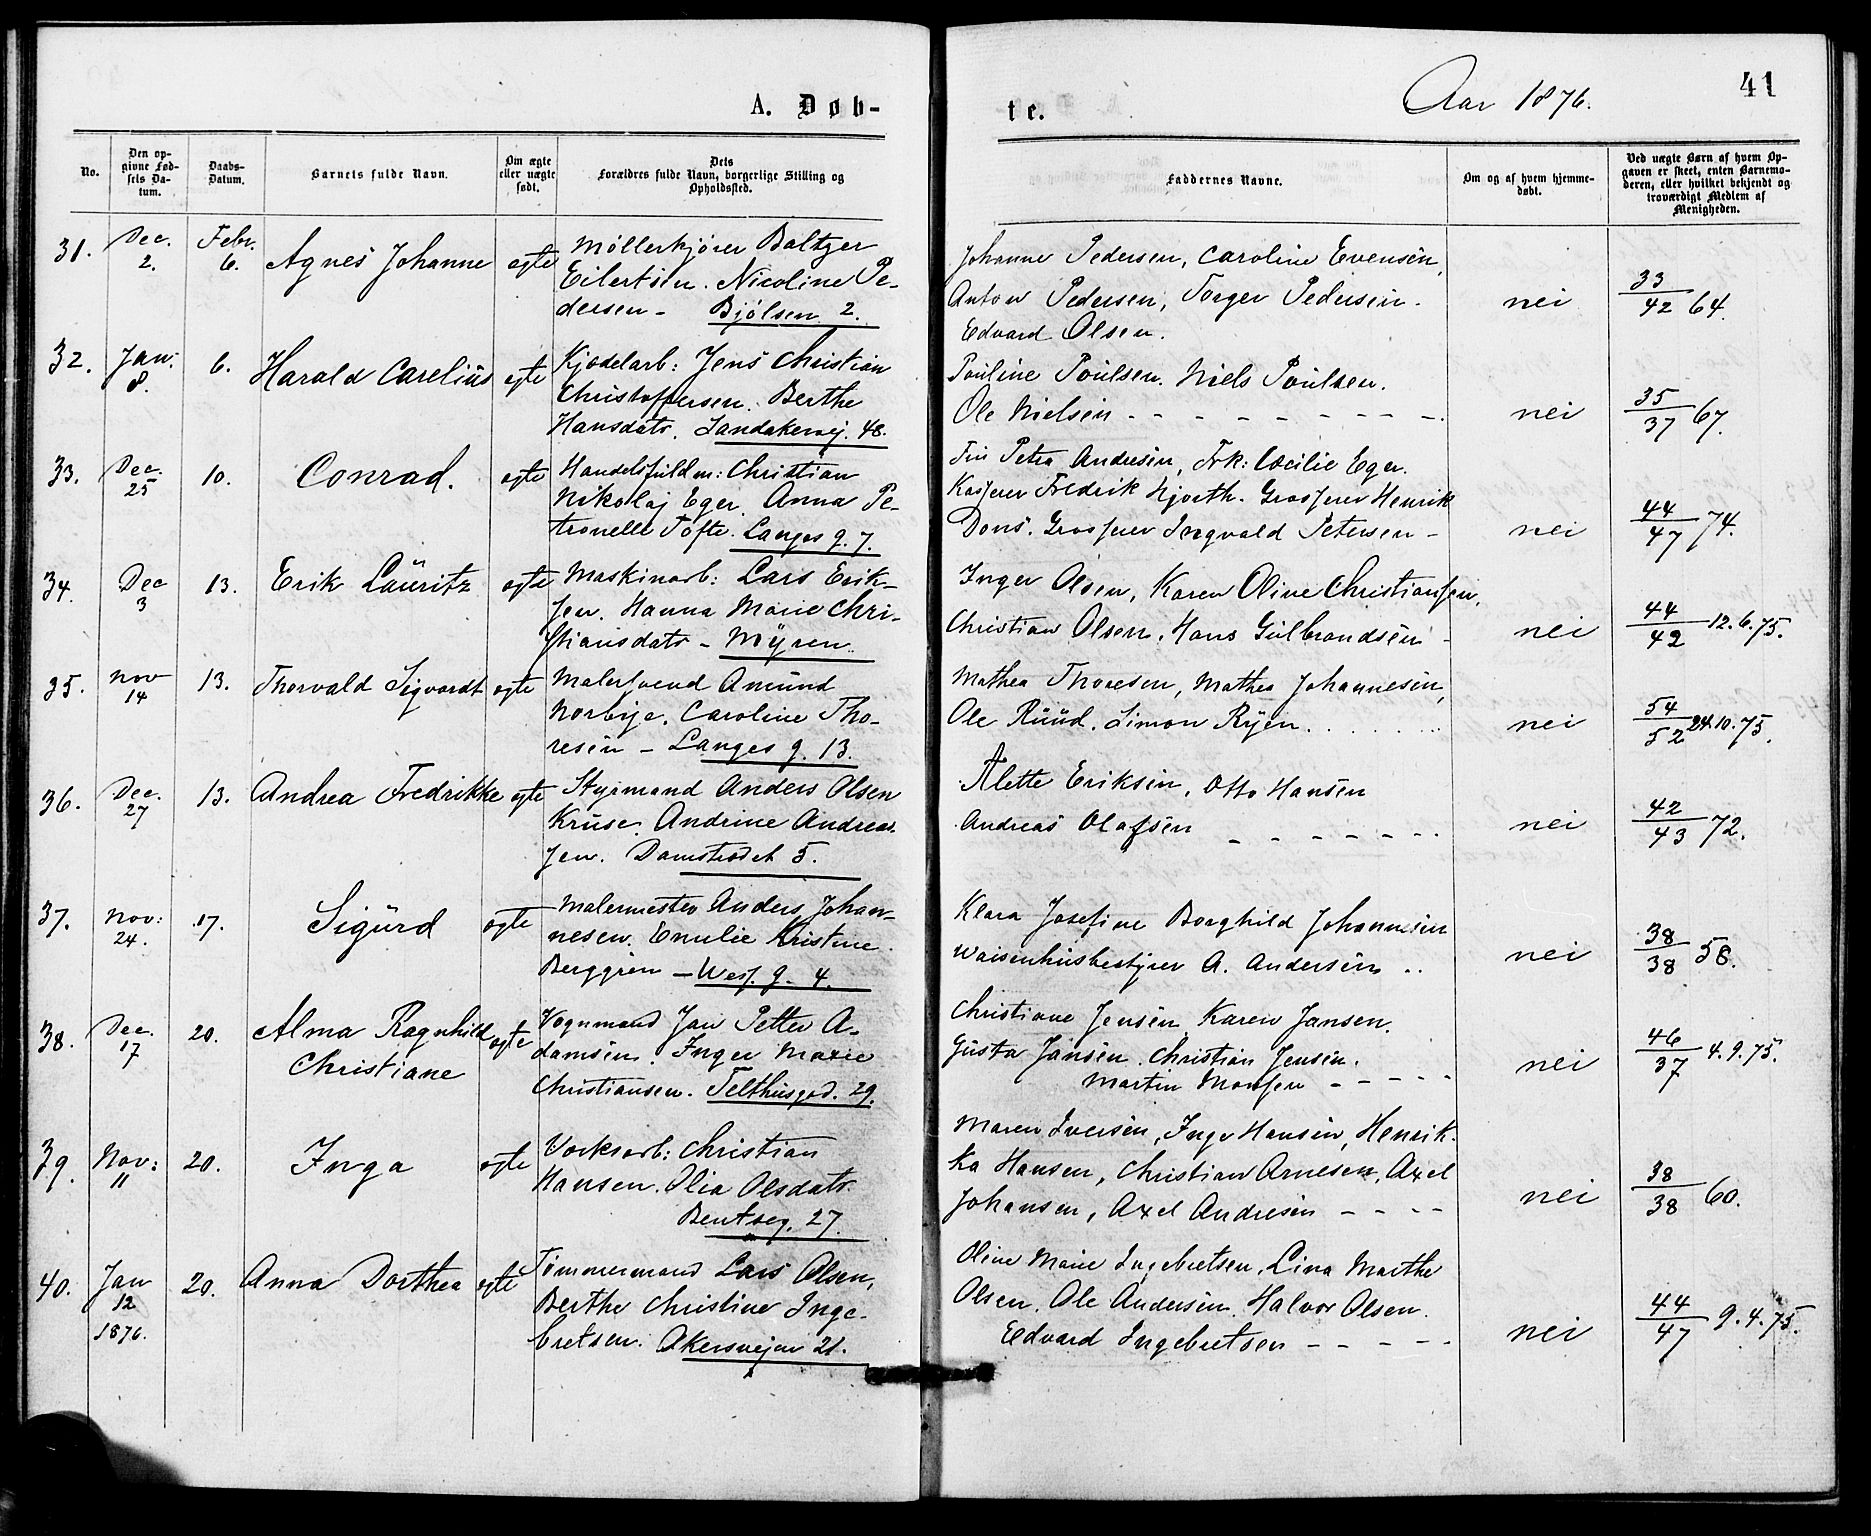 A. Døb-
te.
Aar 1876.
41
No.
Den op-
givne Fød-
sels Da-
tum.
Daabs-
Datum.
Barnets fulde Navn.
Om ægte
eller uægte
født.
Dets
Forældres fulde Navn, borgerlige Stilling og
Opholdssted.
Faddernes Navne.
Om og af hvem hjemme-
døbt.
Ved uægte Børn af hvem Op-
gaven er skeet, enten Barnemo-
deren, eller hvilket bekjendt og
troværdigt Medlem af
Menigheden.
31. Dec. 2. Febr. 6. Agnes Johanne ægte Møllerkjører Baltzer
Eilertsen. Nicoline Pe-
dersen - Bjølsen 2.
Johanne Pedersen, Caroline Evensen,
Anton Pedersen, Torger Pedersen.
Edvard Olsen.
nei 33/42 64.
32. Jan. 8. 6. Harald Carelius ægte Kjædelarb: Jens Christian
Christoffersen. Berthe
Hansdatr. Sandakervej. 48.
Pouline Poulsen. Niels Poulsen.
Ole Nielsen - - - - - - - -
nei 35/37 67.
33. Dec. 25 10. Conrad. ægte Handelsfuldm: Christian
Nikolaj Eger. Anna Pe-
tronelle Tofte. Langes g. 7.
Fru Petra Andresen, Frk: Cæcilie Eger.
Kasserer Fredrik Hjorth. Grosserer Henrik
Dons. Grosserer Ingvald Petersen -
nei 44/47 74.
34. Dec 3 13. Erik Lauritz ægte Maskinarb: Lars Erik-
sen. Hanna Marie Chri-
stiansdatr - Myren.
Inger Olsen, Karen Oline Christiansen,
Christian Olsen. Hans Gulbrandsen -
nei 44/42 12.6.75.
35. Nov 14 13. Thorvald Sigvardt ægte Malersvend Amund
Norbye. Caroline Tho-
resen - Langes g. 13.
Mathea Thoresen, Mathea Johannesen,
Ole Ruud. Simon Ryen . . . . .
nei 54/52 24.10.75.
36. Dec. 27 13. Andrea Fredrikke ægte Styrmand Anders Olsen
Kruse. Andrine Andreas-
sen. Damstrædet 5.
Alette Eriksen, Otto Hansen
Andreas Olafsen - - - - - -
nei 42/43 72.
37. Nov: 24. 17. Sigurd ægte Malermester Anders Johan-
nesen. Emilie Kristine
Berggren - Wess. g. 4.
Klara Josefine Borghild Johannesen
Waisenhusbestyrer A. Andersen . .
nei 38/38 58.
38. Dec. 17 20. Alma Ragnhild
Christiane ægte Vognmand Jan Petter A-
damsen. Inger Marie
Christiansen. Telthusgad. 29.
Christiane Jensen Karen Jansen.
Gusta Jansen. Christian Jensen.
Martin Monsen - - - - -
nei 46/37 4.9.75.
39. Nov: 11 20. Inga ægte Værksarb: Christian
Hansen. Olia Olsdatr.
Bentseg. 27.
Maren Iversen, Inger Hansen, Henrik-
ka Hansen, Christian Arnesen, Axel
Johansen, Axel Andresen - - - -
nei 38/38 60.
40. Jan 12 1876. 20. Anna Dorthea ægte Tømmermand Lars Olsen,
Berthe Christine Inge-
bretsen. Akersvejen 21.
Oline Marie Ingebretsen, Lina Marthe
Olsen. Ole Andersen. Halvor Olsen.
Edvard Ingebretsen - - - -
nei 44/47 9.4.75.